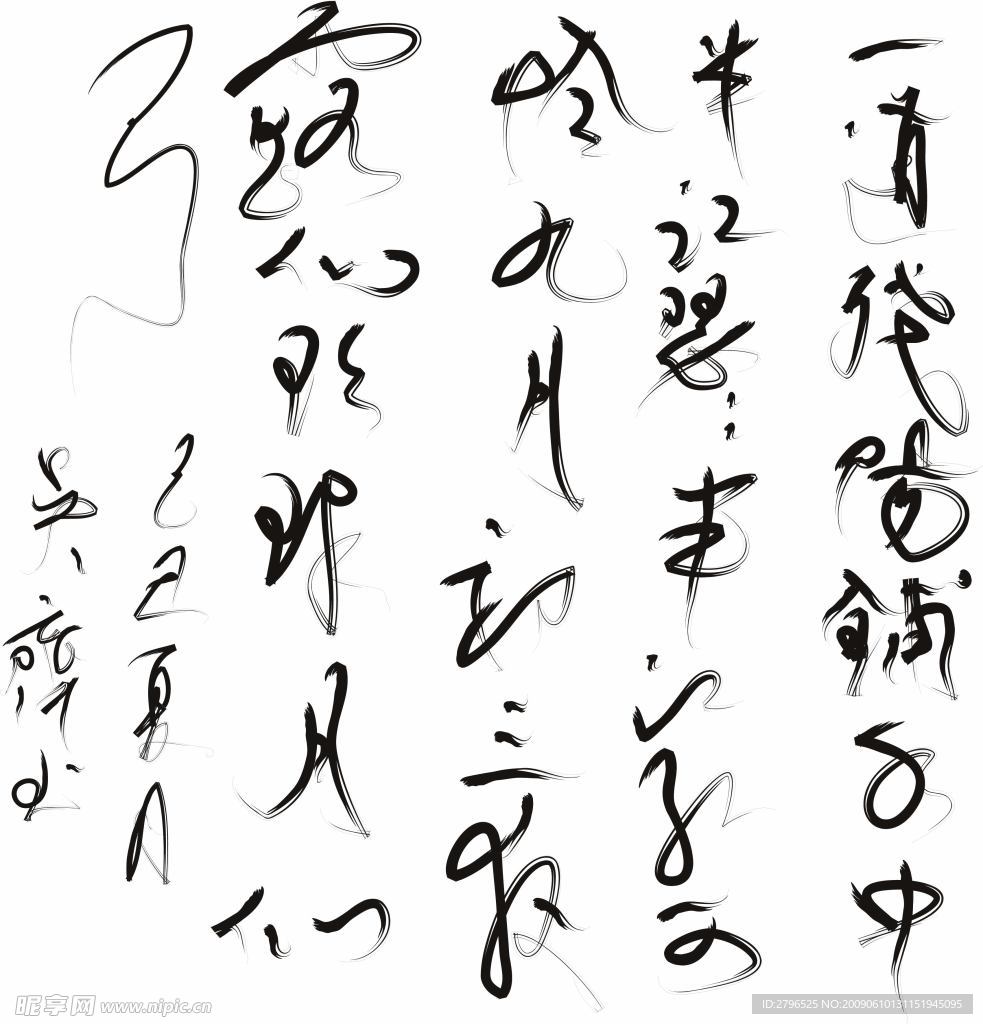 一道残阳铺水中
半江瑟瑟半江红可
怜九月初三夜
露似珍珠月似
弓
己丑夏月
吴
昵享网 www.nipic.cn
ID:2796525 NO:20090610131151945095